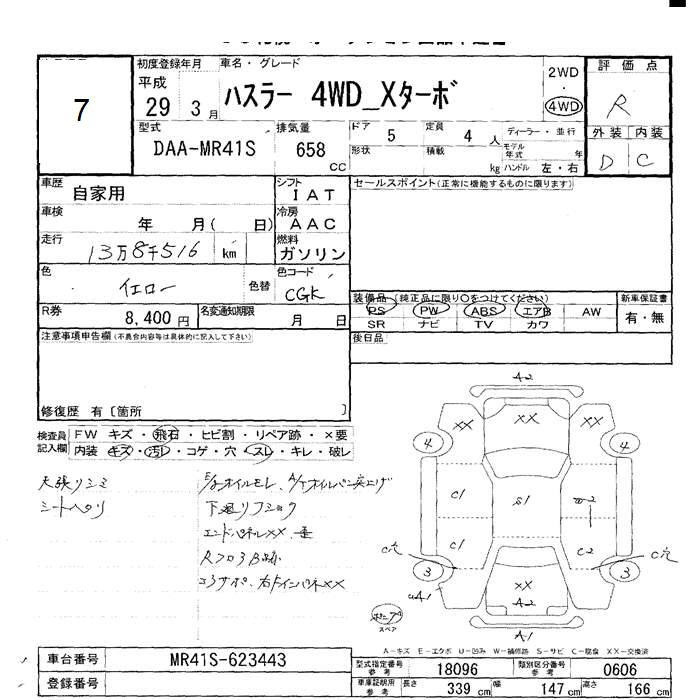 7
初度登録年月
平成
29 3 月
車名・グレード
ハスラー 4WD_Xターボ
2WD
・
4WD
評価点
R
外装 内装
D C
型式
DAA-MR41S
排気量
658 CC
ドア 5
定員 4 人
形状
積載 kg
ディーラー・並行
モデル年式 年
ハンドル 左・右
車歴 自家用
シフト IAT
車検 年 月( 日)
冷房 AAC
走行 13万8千516 km
燃料 ガソリン
色 イエロー 色替
色コード CGK
R券 8,400 円
名変通知期限 月 日
セールスポイント(正常に機能するものに限ります)
装備品(純正品に限り○をつけてください)
PS PW ABS エアB AW
SR ナビ TV カワ
新車保証書
有・無
後日品
注意事項申告欄(不具合内容等は具体的に記入して下さい)
修復歴 有〔箇所 〕
検査員記入欄
FW キズ・飛石・ヒビ割・リペア跡・×要
内装 キズ・汚レ・コゲ・穴・スレ・キレ・破レ
天張りシミ
シートヘタリ
E/gオイルモレ、A/Tオイルパン突上げ
下廻りフショク
エンドパネルXX
コアサポ、右ドインパネXX
A2
XX XX XX
4 4
C1 S1
C1 C2
C穴 C穴
3 3
XX
A2
A1
スペア
A-キズ E-エクボ U-凹み W-補修跡 S-サビ C-腐食 XX-交換済
車台番号 MR41S-623443
登録番号
型式指定番号 参考 18096
類別区分番号 参考 0606
車庫証明用 参考 長さ 339 cm 幅 147 cm 高さ 166 cm